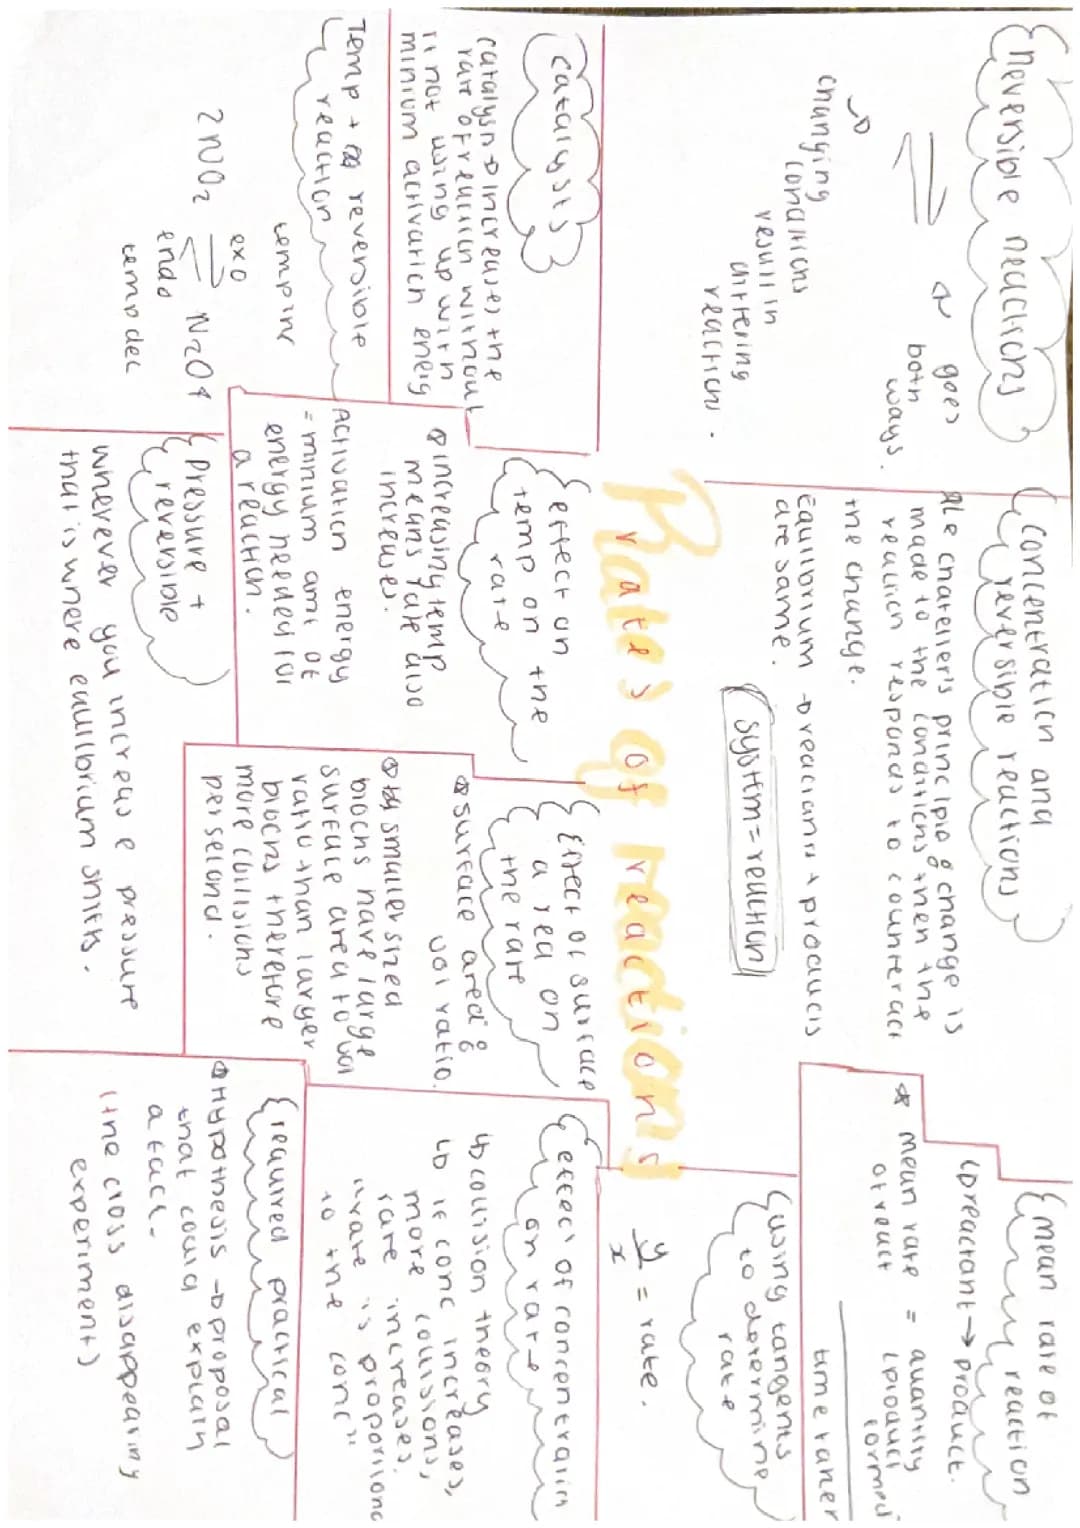 reversible reactions
⇌ → goes both ways.
→ changing
conditions
result in
differing
reactions.
Concentration and
reversible reactions
Le chatelier's principle: change is
made to the conditions then the
reaction responds to counteract
the change.
Equilibrium → reactants + products
are same.
system = reaction
mean rate of
reaction
↳ reactant → product.
* mean rate = quantity
of react (product
formed
time taken
using tangents
to determine
rate
y/x = rate.
Rates of reactions
catalysts
catalysn → increases the
rate of reaction without
it not using up with
minium activation energ
effect on
temp on the
rate
increasing temp
means rate also
increases.
Activation energy
= minium amt of
energy needed for
a reaction.
Effect of surface
area on
the rate
surface area:
vol ratio.
smaller sized
blocks have large
surface area to vol
ratio than larger
blocks therefore
more collisions
per second.
effect of concentration
on rate
↳ collision theory
↳ if conc increases,
more collisions,
rate increases.
"rate is proportional
to the conc"
Temp + reversible
reaction
temp inc
exo
2NO2 ⇌ N2O4
endo
temp dec
Pressure +
reversible
whenever you increase pressure
that is where equilibrium shifts.
required practical
Hypothesis → proposal
that could explain
a fact.
(the cross disappearing
experiment)